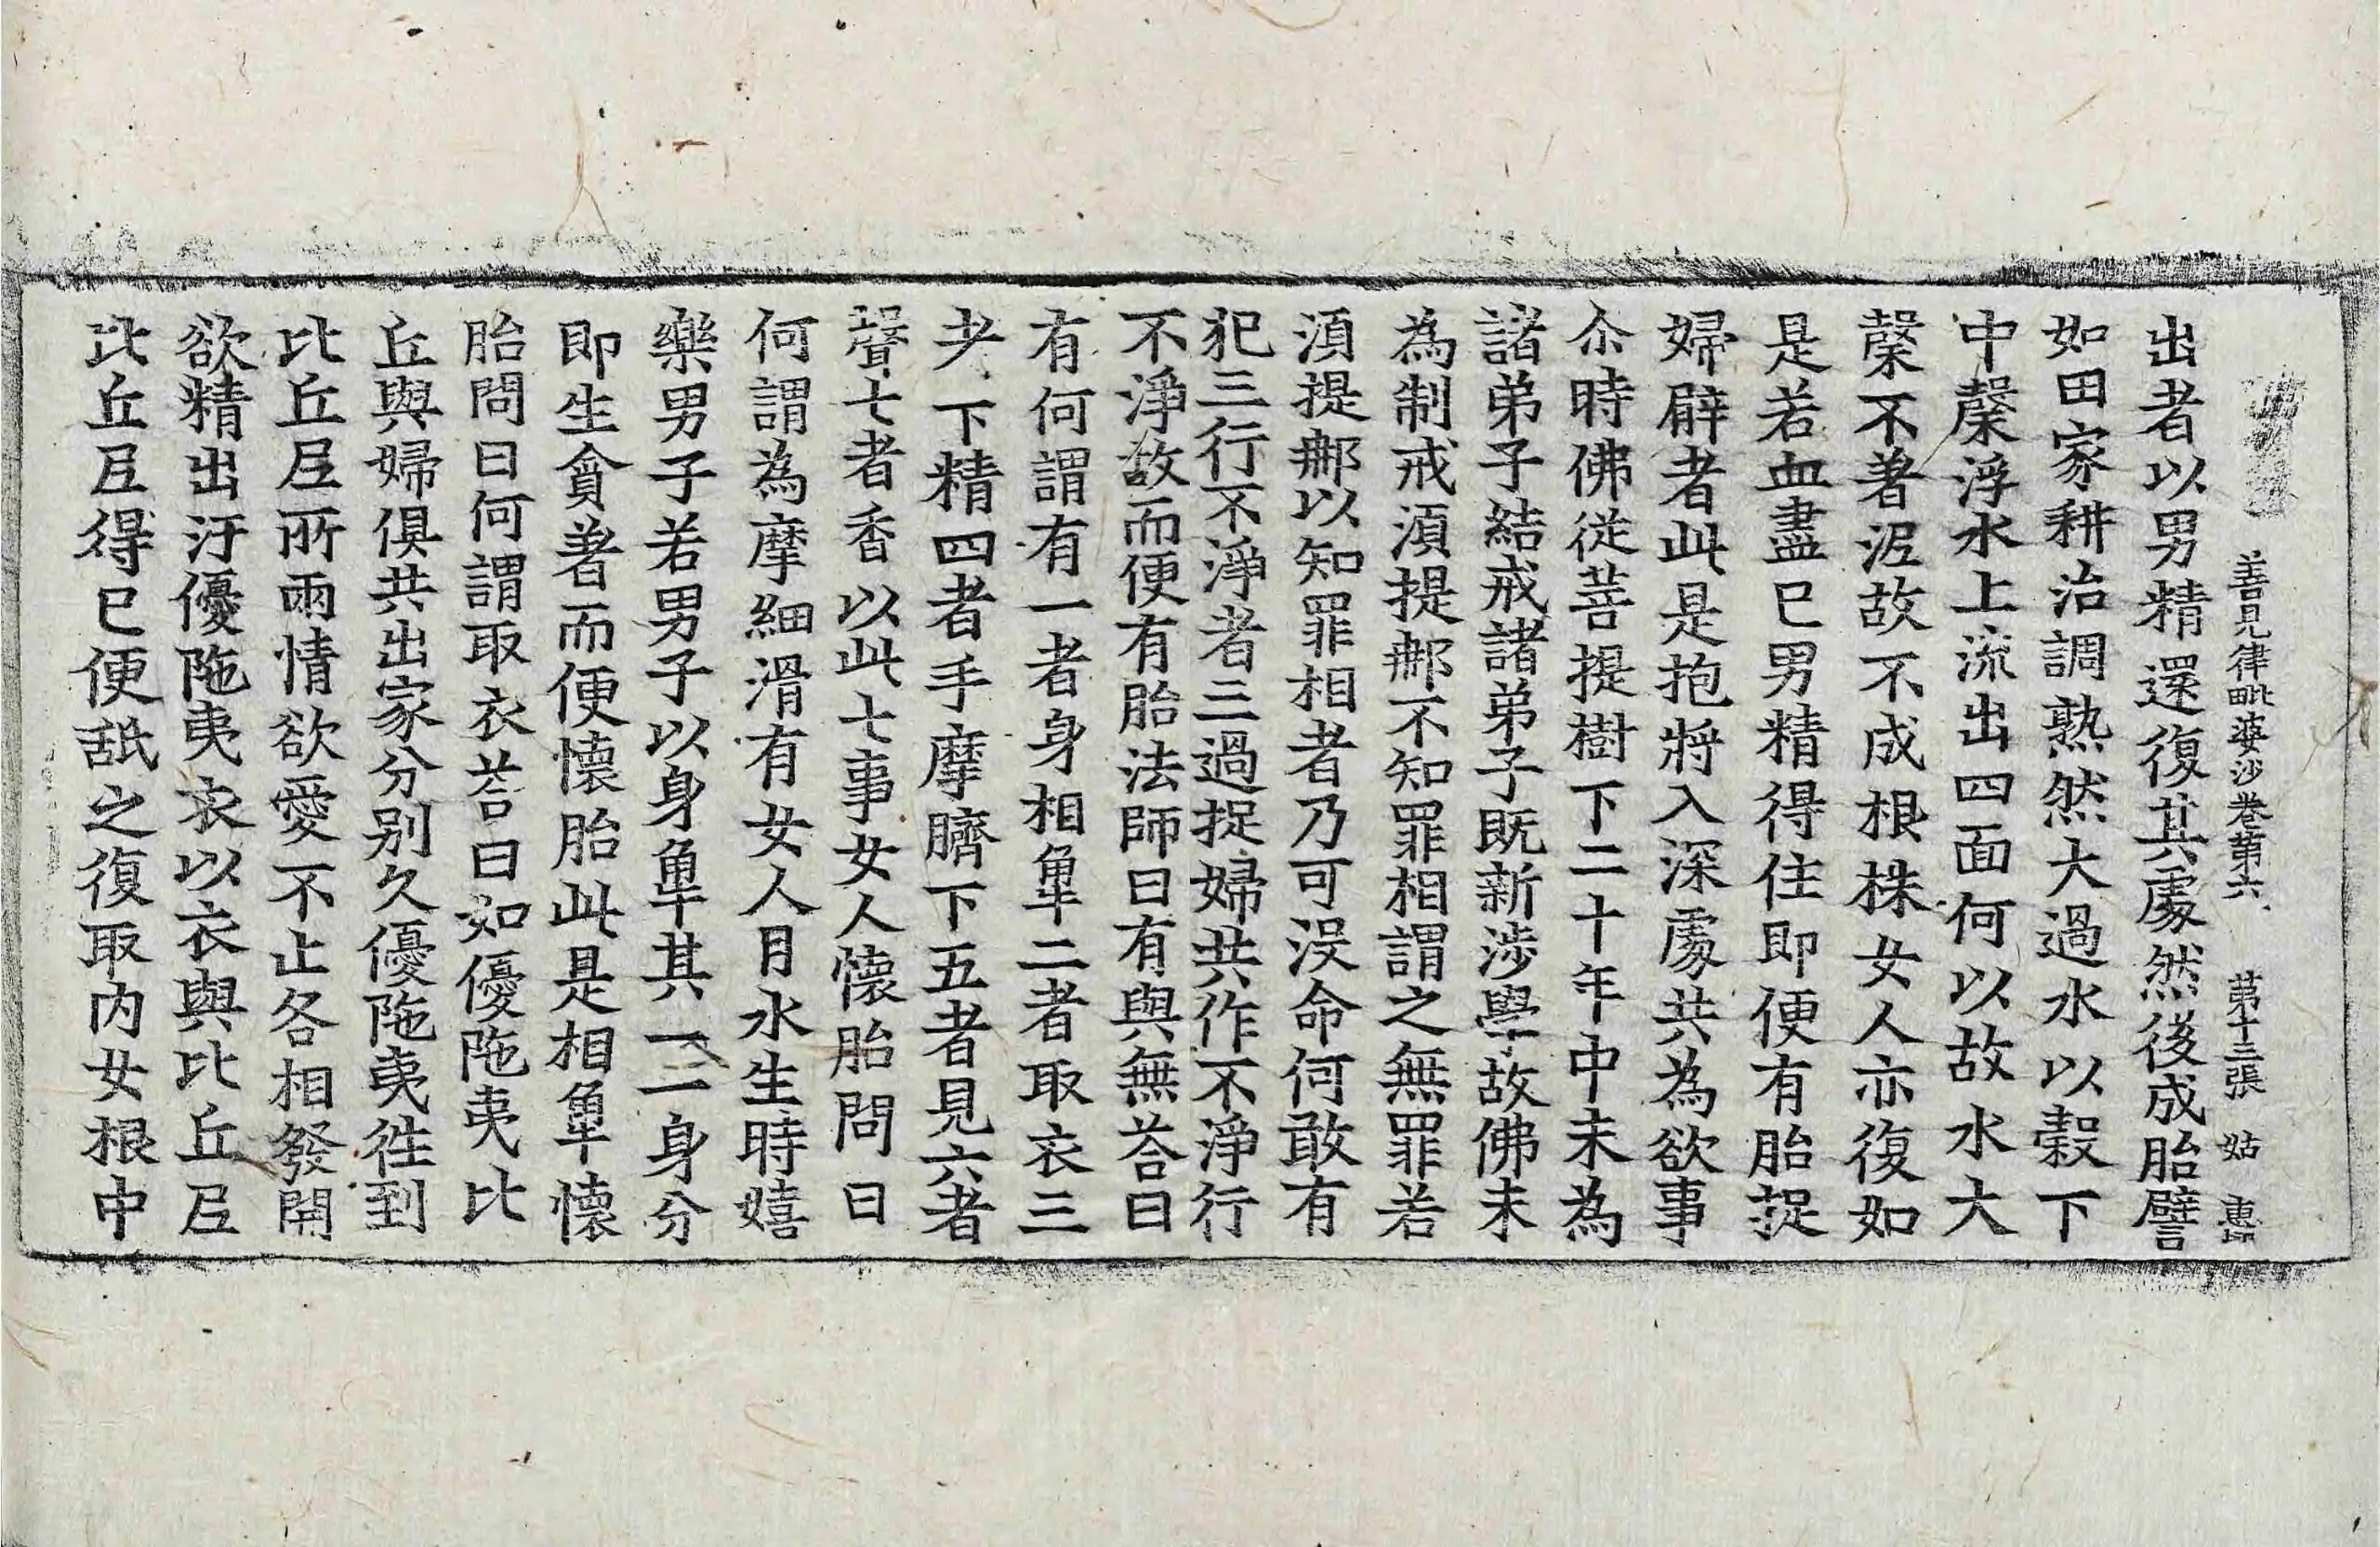 善見律毗婆沙卷第六 第十三張 姑
出者以男精還復其處然後成胎譬
如田家耕治調熟然大過水以穀下
中䅽浮水上流出四面何以故水大
䅽不著泥故不成根株女人亦復如
是若血盡已男精得住即便有胎捉
婦臂者此是抱將入深處共為欲事
尒時佛從菩提樹下二十年中未為
諸弟子結戒諸弟子既新涉學故佛未
為制戒須提那不知罪相謂之無罪若
須提那以知罪相者乃可没命何敢有
犯三行不淨者三過捉婦共作不淨行
不淨故而便有胎法師曰有與無荅曰
有何謂有一者身相觸二者取衣三
者下精四者手摩臍下五者見六者
聲七者香以此七事女人懷胎問曰
何謂為摩細滑有女人月水生時嬉
樂男子若男子以身觸其一一身分
即生貪著而便懷胎此是相觸懷
胎問曰何謂取衣荅曰如優陁夷比
丘與婦俱共出家分别久優陁夷徃到
比丘尼所兩情欲愛不止各相發開
欲精出汙優陁夷衣以衣與比丘尼
比丘尼得已便舐之復取内女根中